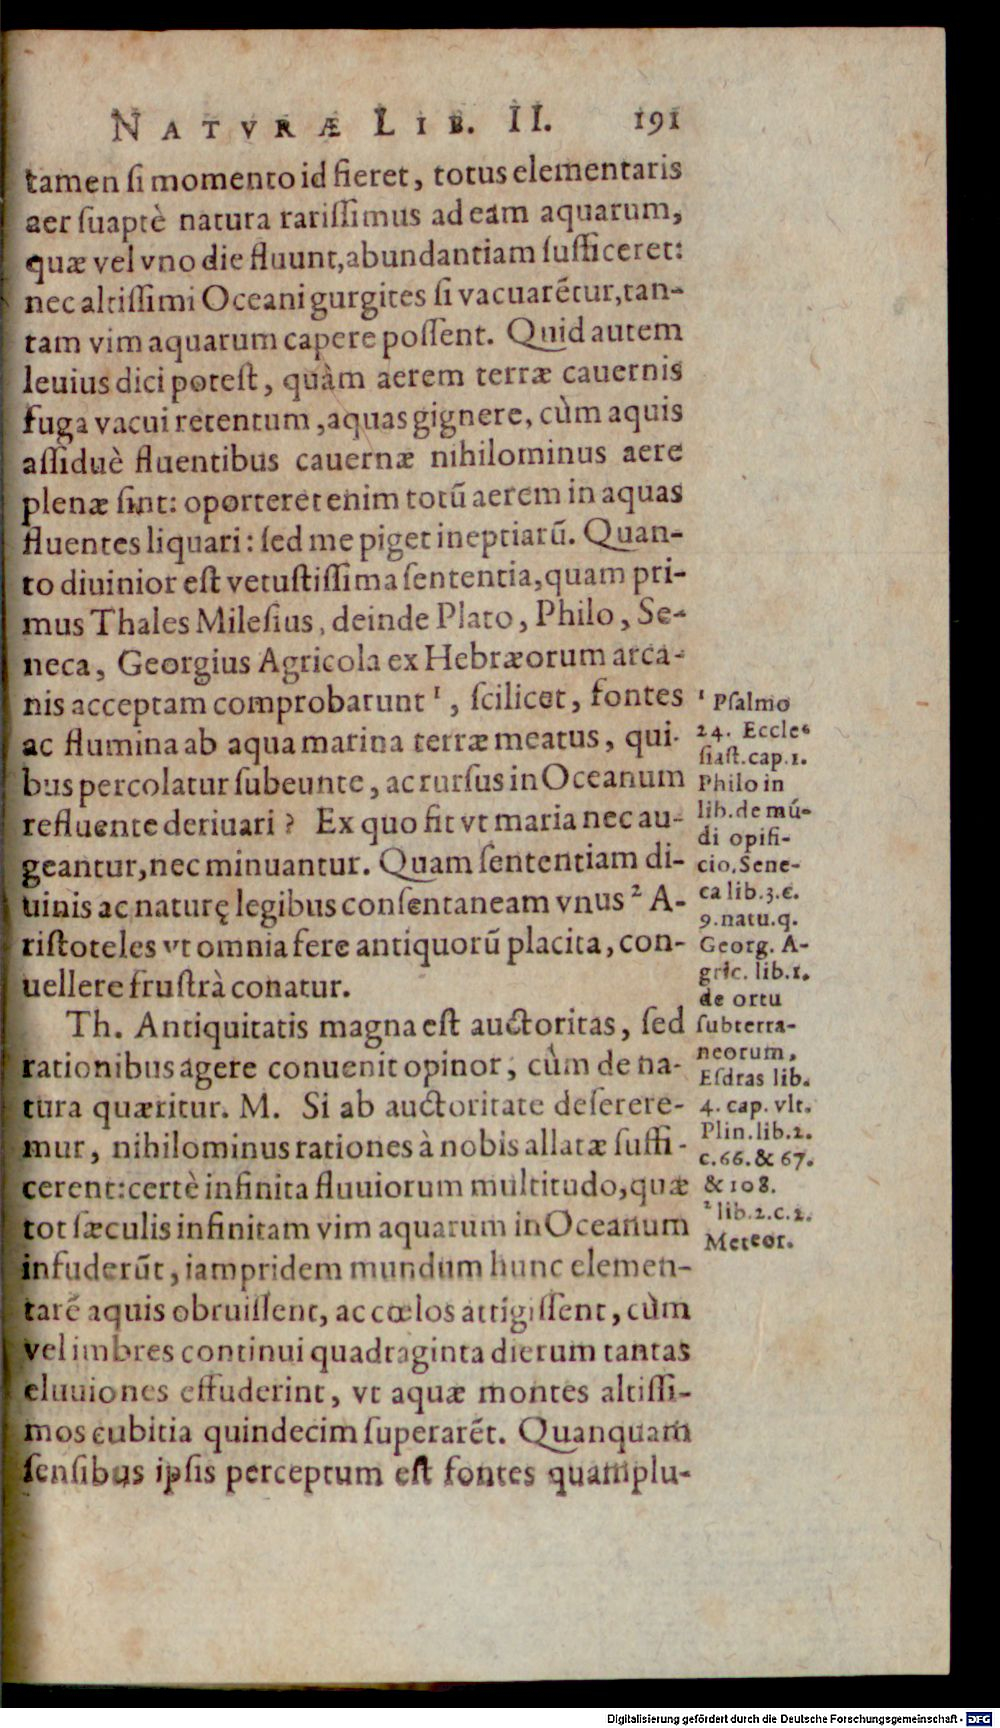 NATVRÆ LIB. II. 191
tamen si momento id fieret, totus elementaris
aer suaptè natura rarissimus ad eam aquarum,
quæ vel vno die fluunt, abundantiam sufficeret:
nec altissimi Oceani gurgites si vacuarẽtur, tan-
tam vim aquarum capere possent. Quid autem
leuius dici potest, quàm aerem terræ cauernis
fuga vacui retentum, aquas gignere, cùm aquis
assiduè fluentibus cauernæ nihilominus aere
plenæ sint: oporteret enim totũ aerem in aquas
fluentes liquari: sed me piget ineptiarũ. Quan-
to diuinior est vetustissima sententia, quam pri-
mus Thales Milesius, deinde Plato, Philo, Se-
neca, Georgius Agricola ex Hebræorum arca-
nis acceptam comprobarunt ¹, scilicet, fontes
ac flumina ab aqua marina terræ meatus, qui-
bus percolatur subeunte, ac rursus in Oceanum
refluente deriuari? Ex quo fit vt maria nec au-
geantur, nec minuantur. Quam sententiam di-
uinis ac naturę legibus consentaneam vnus ² A-
ristoteles vt omnia fere antiquorũ placita, con-
uellere frustrà conatur.
Th. Antiquitatis magna est auctoritas, sed
rationibus agere conuenit opinor, cùm de na-
tura quæritur. M. Si ab auctoritate desерere-
mur, nihilominus rationes à nobis allatæ suffi-
cerent: certè infinita fluuiorum multitudo, quæ
tot sæculis infinitam vim aquarum in Oceanum
infuderũt, iampridem mundum hunc elemen-
tarẽ aquis obruissent, ac cœlos attigissent, cùm
vel imbres continui quadraginta dierum tantas
eluuiones effuderint, vt aquæ montes altissi-
mos cubitia quindecim superarẽt. Quanquam
sensibus ipsis perceptum est fontes quamplu-
¹ Psalmo
24. Eccle-
siast. cap. 1.
Philo in
lib. de mũ-
di opifi-
cio. Sene-
ca lib. 3. c.
9. natu. q.
Georg. A-
gric. lib. 1.
de ortu
subterra-
neorum,
Esdras lib.
4. cap. vlt.
Plin. lib. 2.
c. 66. & 67.
& 108.
² lib. 2. c. 2.
Meteor.
Digitalisierung gefördert durch die Deutsche Forschungsgemeinschaft - DFG